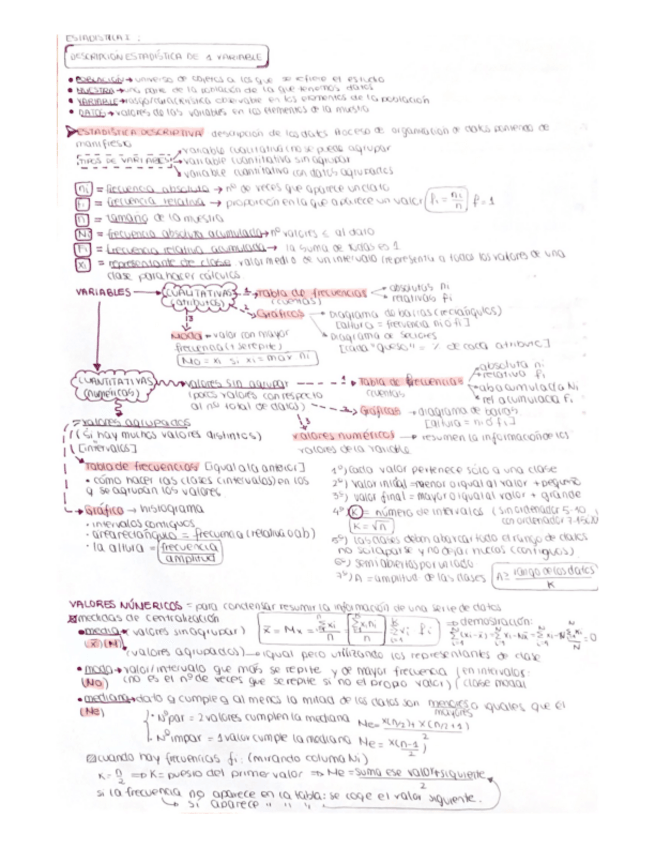 ESTADÍSTICA I:
DESCRIPCIÓN ESTADÍSTICA DE 1 VARIABLE
• POBLACIÓN → universo de objetos a los que se refiere el estudio
• MUESTRA → una parte de la población de la que tenemos datos
• VARIABLE → rasgo/característica observable en los elementos de la población
• DATOS → valores de las variables en los elementos de la muestra
ESTADÍSTICA DESCRIPTIVA: descripción de los datos. Proceso de organización de datos poniendo de
manifiesto
TIPOS DE VARIABLES
variable cualitativa (no se puede agrupar
variable cuantitativa sin agrupar
variable cuantitativa con datos agrupados
ni = frecuencia absoluta → nº de veces que aparece un dato
fi = frecuencia relativa → proporción en la que aparece un valor fi = ni/n
n = tamaño de la muestra
Ni = frecuencia absoluta acumulada → nº valores ≤ al dato
Fi = frecuencia relativa acumulada → la suma de todas es 1
xi = representante de clase: valor medio de un intervalo (representa a todos los valores de una
clase para hacer cálculos
VARIABLES → CUALITATIVAS (atributos)
1 → Tabla de frecuencias (cuentas)
absolutas ni
relativas fi
2 Gráficos
Diagrama de barras (rectángulos)
[altura = frecuencia ni o fi]
Diagrama de sectores
[cada "queso" = % de cada atributo]
3
Moda → valor con mayor
frecuencia (+ se repite)
Mo = xi si xi = max ni
CUANTITATIVAS (numéricas)
valores sin agrupar
(pocos valores con respecto
al nº total de datos)
1 Tabla de frecuencias
cuentas
absoluta ni
relativa fi
aba acumulada Ni
rel acumulada Fi
2 Gráficos → diagrama de barras
[altura = ni o fi]
3
valores numéricos → resumen la información de los
valores de la variable
valores agrupados
(si hay muchos valores distintos)
[intervalos]
Tabla de frecuencias [igual a la anterior]
• cómo hacer las clases (intervalos) en los
q se agrupan los valores
Gráfico → histograma
• intervalos contiguos
• area rectángulo = frecuencia (relativa o ab)
• la altura = frecuencia/amplitud
1º) cada valor pertenece sólo a una clase
2º) valor inicial = menor o igual al valor + pequeño
3º) valor final = mayor o igual al valor + grande
4º) K = número de intervalos (sin ordenador 5-10
K = √n
5º) las clases deben abarcar todo el rango de datos
no solaparse y no dejar huecos (contiguos)
6º) semiabiertas por un lado
7º) A = amplitud de las clases A ≥ rango de los datos/K
VALORES NÚMERICOS = para condensar resumir la información de una serie de datos
medidas de centralización
• media (valores sin agrupar)
→ demostración:
(valores agrupados) → igual pero utilizando los representantes de clase
• moda → valor/intervalo que más se repite y de mayor frecuencia
(Mo) (no es el nº de veces que se repite si no el propio valor)
en intervalos:
clase modal
• mediana → dato q cumple q al menos la mitad de los datos son menores o iguales que el
mayores
(Me)
• Nº par = 2 valores cumplen la mediana Me = x(n/2) + x(n/2+1)/2
• Nº impar = 1 valor cumple la mediana
cuando hay frecuencias fi: (mirando columna Ni)
K = n/2 ⇒ K = puesto del primer valor ⇒ Me = suma ese valor + siguiente/2
si la frecuencia no aparece en la tabla: se coge el valor siguiente.
si aparece " " "